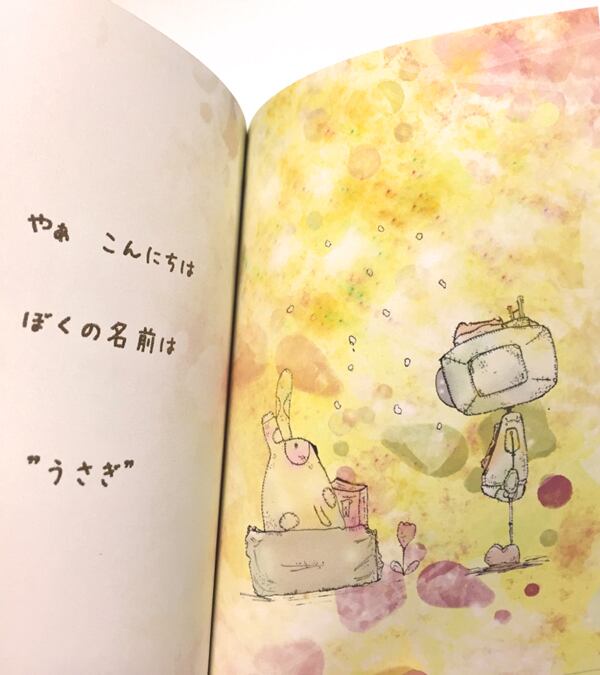 やぁ こんにちは
ぼくの名前は
"うさぎ"